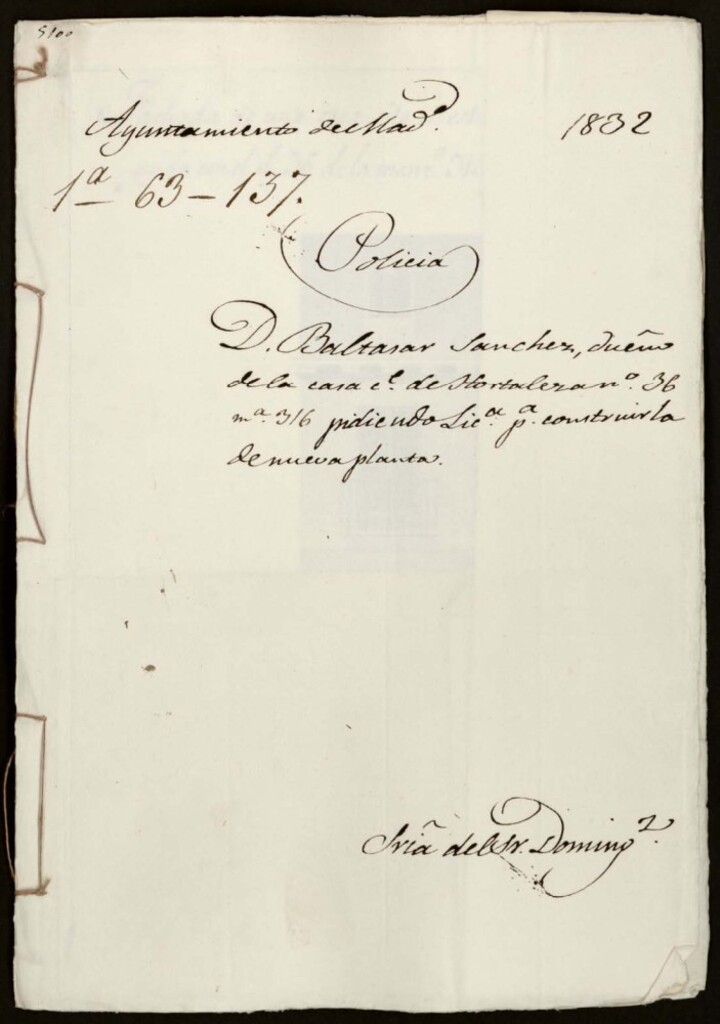 5100
Ayuntamiento de Mad.d
1832
1ª 63-137.
Policia
D. Baltasar Sanchez, dueño
de la casa c.e de Hortaleza n.º 36
m.ª 316 pidiendo Lic.ª p.ª construirla
de nueva planta.
Sriã del Sr. Doming.z